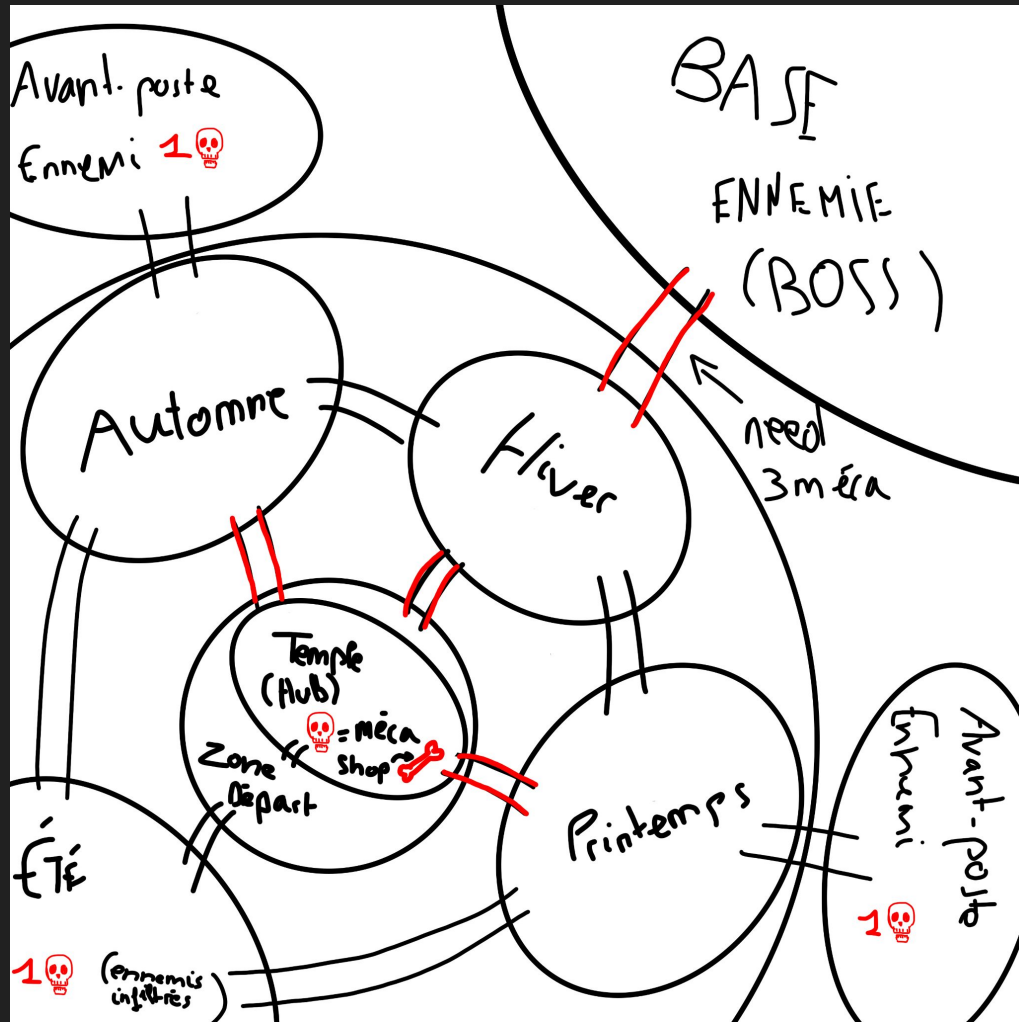 Avant-poste
Ennemi 1
BASE
ENNEMIE
(BOSS)
need
3 méca
Automne
Hiver
Temple
(Hub)
= méca
shop
Zone
Départ
Printemps
Avant-poste
Ennemi
1
ÉTÉ
1 (ennemis
infiltrés)